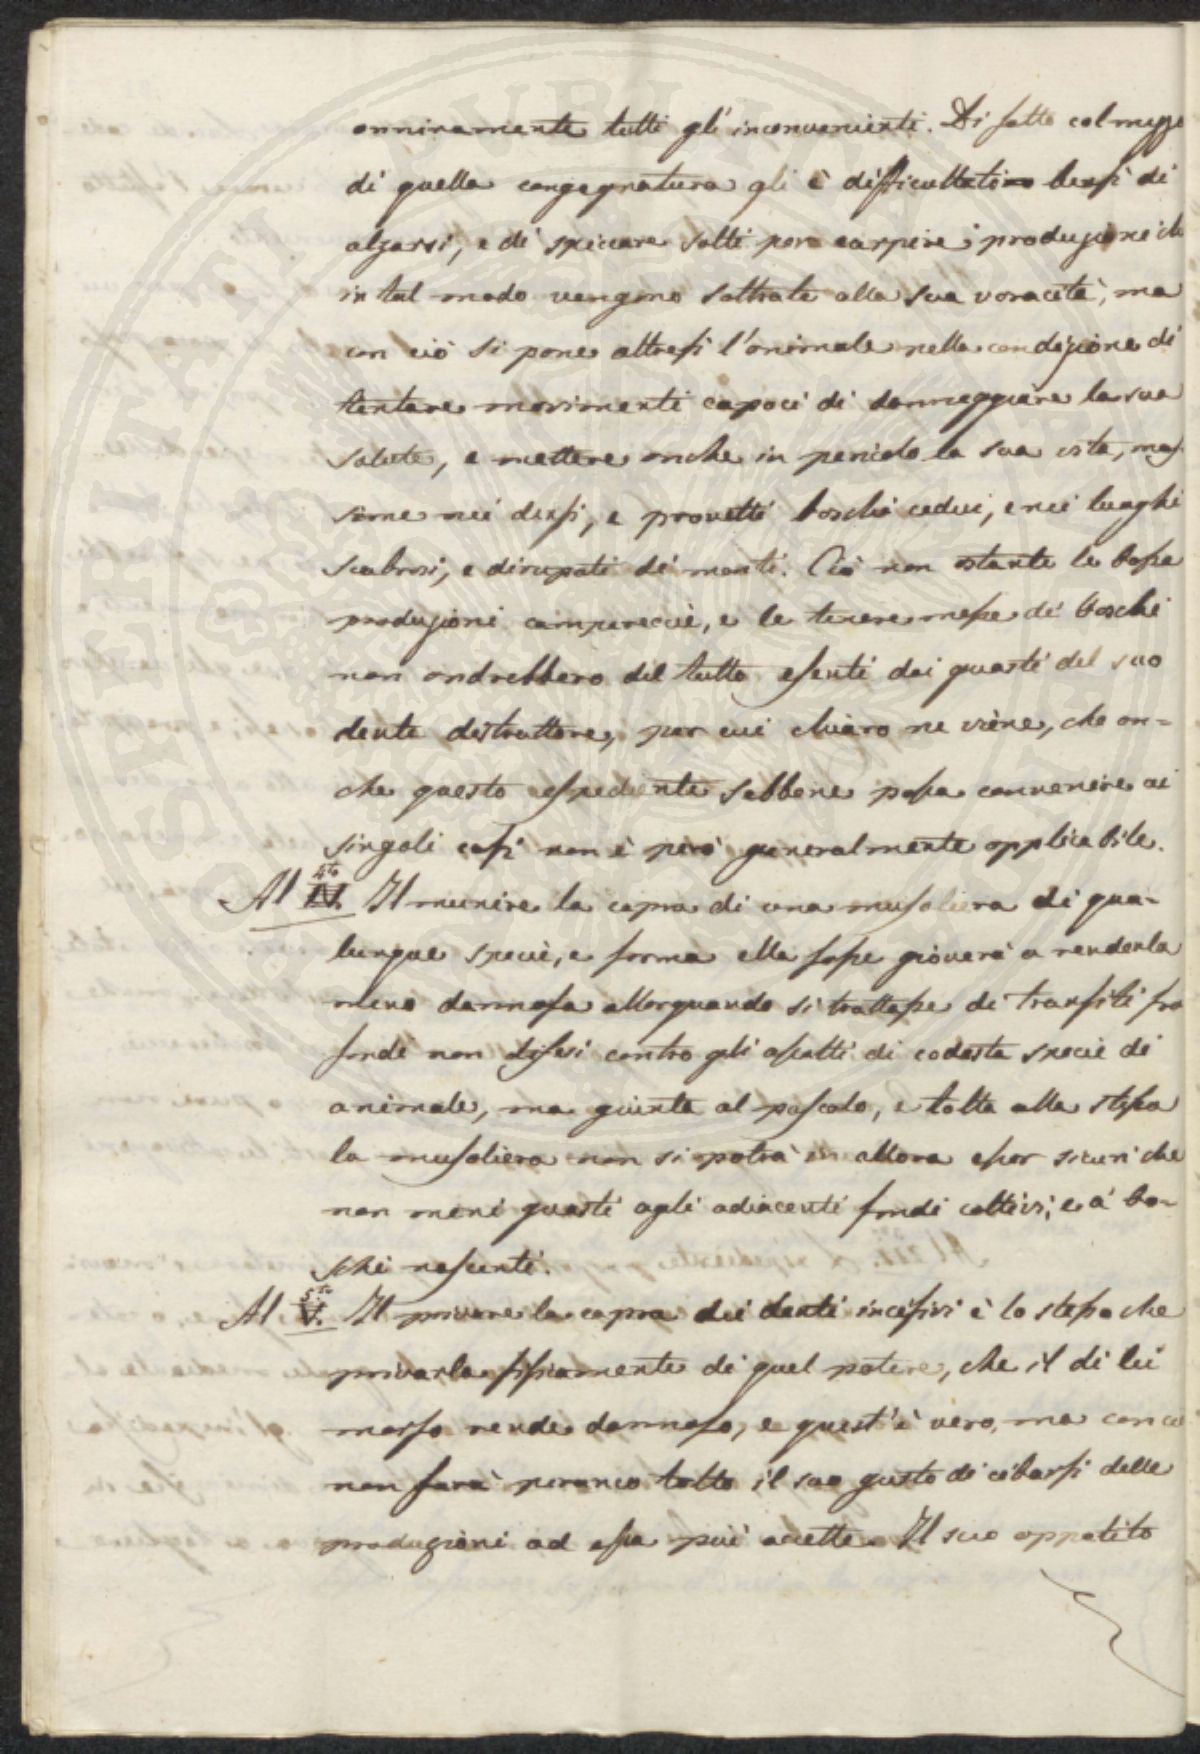 onninamente tutti gl'inconvenienti. Di fatto col mezzo
di quella congegnatura gli è difficultato bensì di
alzarsi, e di spiccare salti per carpire i produzioni che
in tal modo vengono sottratte alla sua voracità, ma
con ciò si pone altresì l'animale nella condizione di
tentare movimenti capaci di danneggiare la sua
salute, e mettere anche in pericolo la sua vita, mas-
sime nei densi, e provetti boschi cedui, e nei luoghi
scabrosi, e dirupati di monti. Ciò non ostante le basse
produzioni camparecie, e le tenere messe de' boschi
non andrebbero del tutto esenti dai guasti del suo
dente distruttore, per cui chiaro ne viene, che an-
che questo espediente sebbene possa convenire ai
singoli casi non è però generalmente applicabile.
Al IV.to Il munire la capra di una musoliera di qua-
lunque specie, e forma ella fosse gioverà a renderla
meno dannosa allorquando si trattasse di transiti fra
fondi non difesi contro gli assalti di codesta specie di
animale, ma giunta al pascolo, e tolta alla stessa
la musoliera non si potrà in allora esser sicuri che
non meni guasti agli adiacenti fondi coltivi, e a' bo-
schi nascenti.
Al V.to Il privare la capra dei denti incisivi è lo stesso che
privarla fisicamente di quel potere, che il di lei
morso rende dannoso, e quest'è vero, ma con ciò
non sarà peranco tolto il suo gusto di cibarsi delle
produzioni ad essa più accette. Il suo appetito